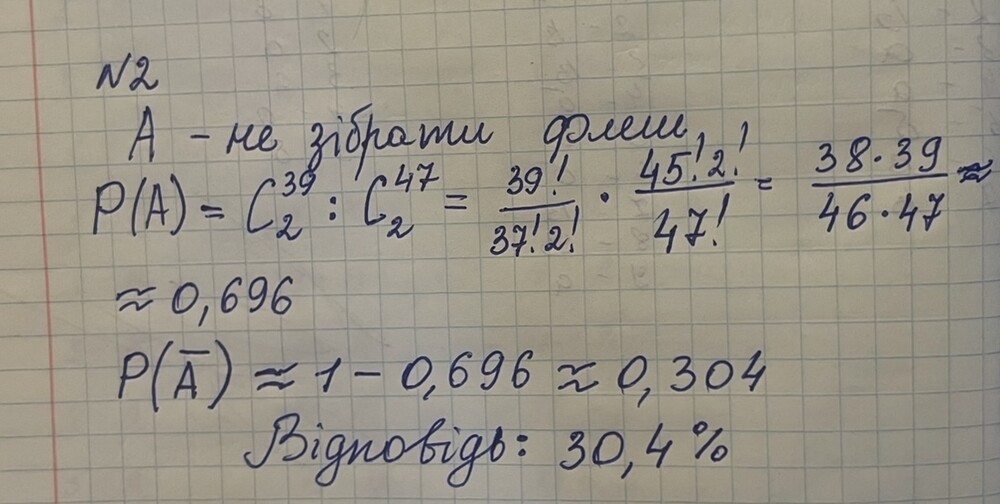 N2
A - не зібрати флеш
P(A) = C₂³⁹ : C₂⁴⁷ = 39!/37!2! · 45!2!/47! = 38·39/46·47 ≈
≈ 0,696
P(Ā) ≈ 1 - 0,696 ≈ 0,304
Відповідь: 30,4%